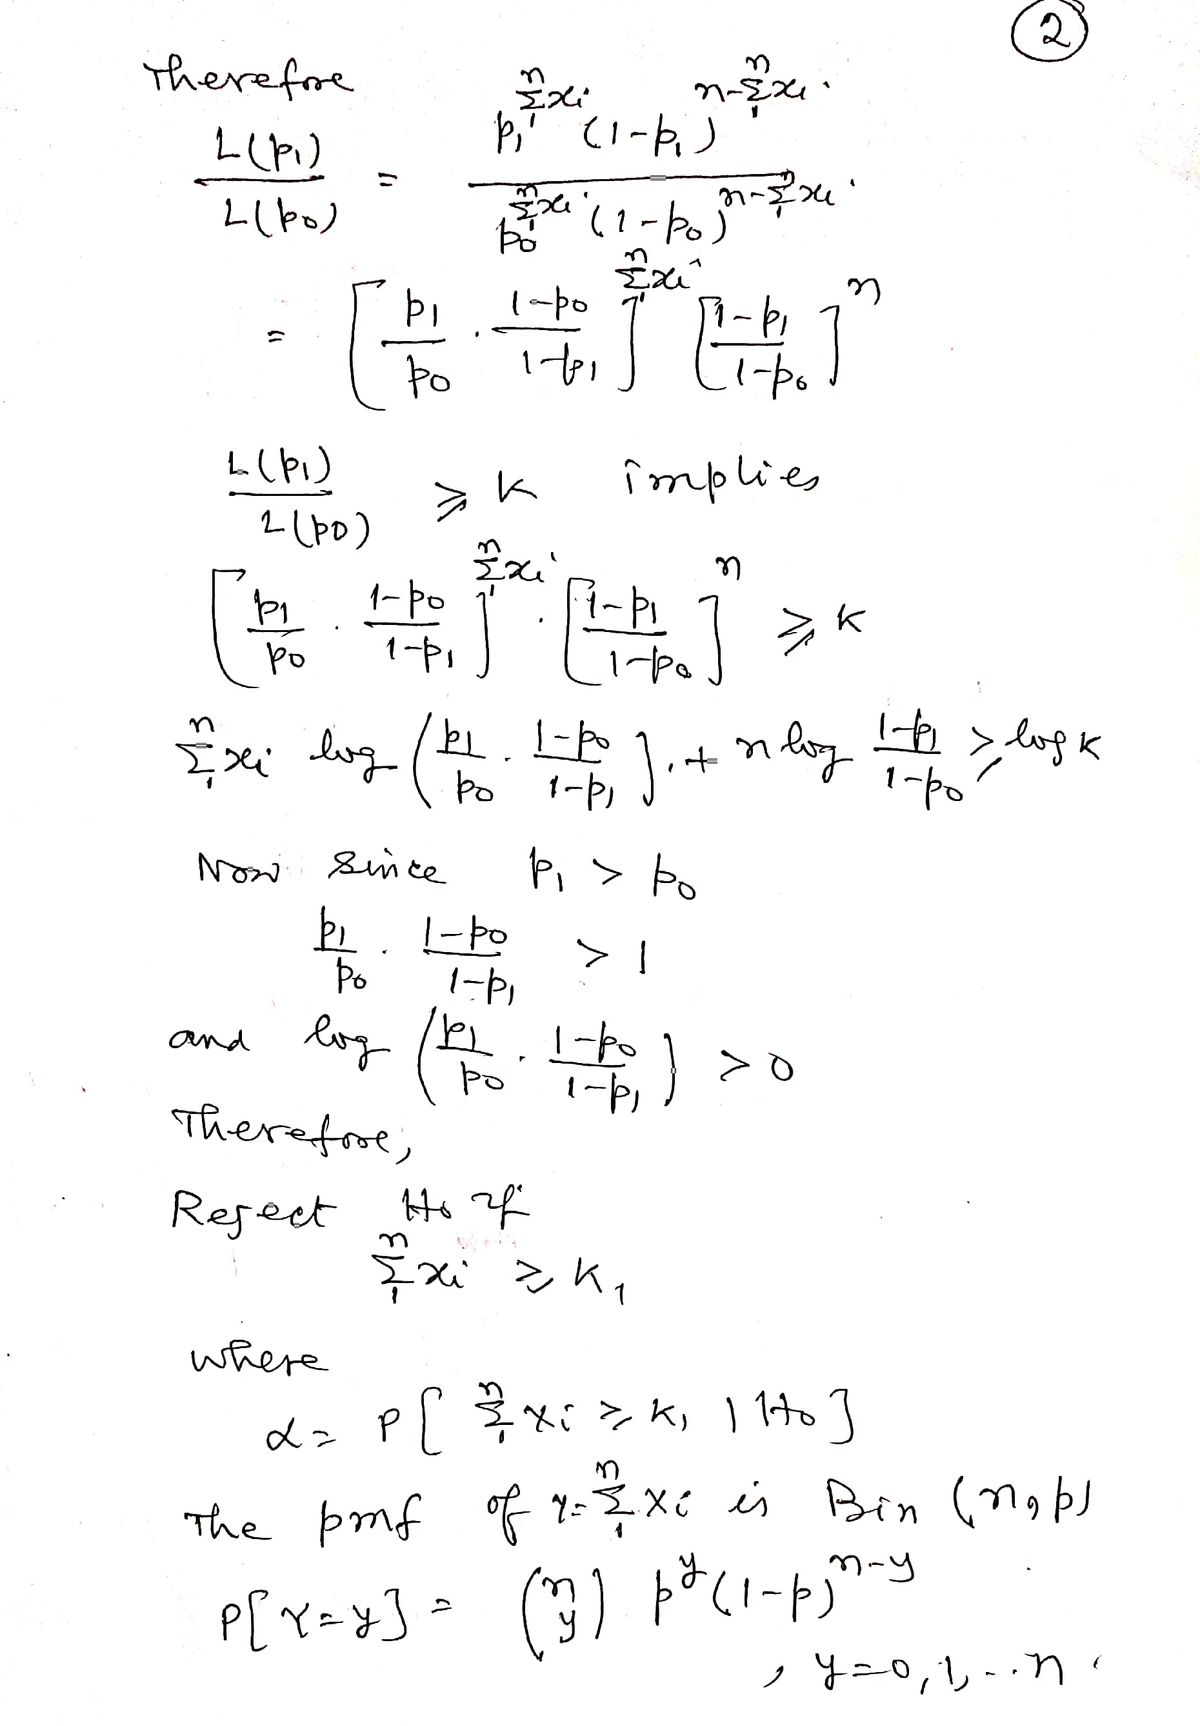 2
Therefore
L(p₁) / L(p₀) = p₁^{Σ₁ⁿ xᵢ} (1-p₁)^{n-Σ₁ⁿ xᵢ} / p₀^{Σ₁ⁿ xᵢ} (1-p₀)^{n-Σ₁ⁿ xᵢ}
= [p₁/p₀ · (1-p₀)/(1-p₁)]^{Σ₁ⁿ xᵢ} [(1-p₁)/(1-p₀)]ⁿ
L(p₁) / L(p₀) ≥ K implies
[p₁/p₀ · (1-p₀)/(1-p₁)]^{Σ₁ⁿ xᵢ} · [(1-p₁)/(1-p₀)]ⁿ ≥ K
Σ₁ⁿ xᵢ log (p₁/p₀ · (1-p₀)/(1-p₁)) + n log (1-p₁)/(1-p₀) ≥ log K
Now since p₁ > p₀
p₁/p₀ · (1-p₀)/(1-p₁) > 1
and log (p₁/p₀ · (1-p₀)/(1-p₁)) > 0
Therefore,
Reject H₀ if
Σ₁ⁿ xᵢ ≥ K₁
where
α = P[Σ₁ⁿ Xᵢ ≥ K₁ | H₀]
The pmf of Y = Σ₁ⁿ Xᵢ is Bin (n, p)
P[Y=y] = (n y) p^y (1-p)^{n-y}
, y=0,1,..n.